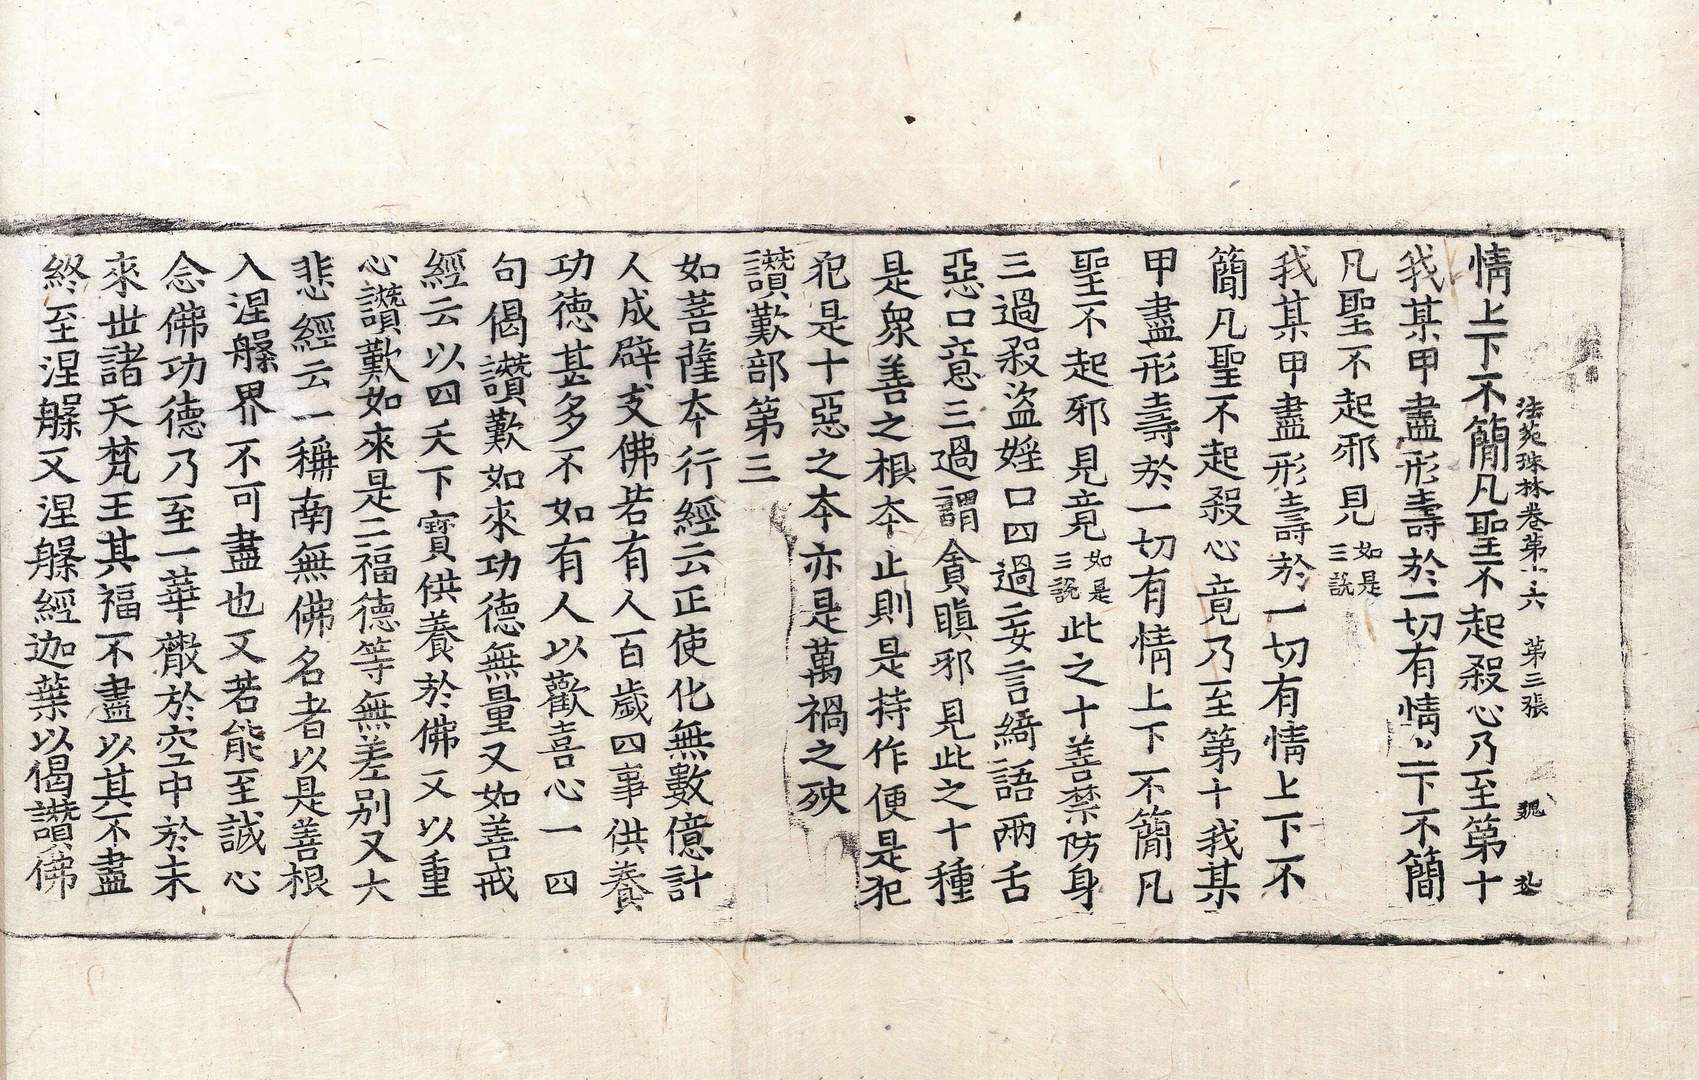 法苑珠林卷第十六 第三張 巍 乱
情上下不簡凡聖不起殺心乃至第十
我某甲盡形壽於一切有情上下不簡
凡聖不起邪見如是三說
我某甲盡形壽於一切有情上下不
簡凡聖不起殺心竟乃至第十我某
甲盡形壽於一切有情上下不簡凡
聖不起邪見竟如是三說此之十善禁防身
三過殺盜婬口四過妄言綺語兩舌
惡口意三過謂貪瞋邪見此之十種
是衆善之根本止則是持作便是犯
犯是十惡之本亦是萬禍之殃
讚歎部第三
如菩薩本行經云正使化無數億計
人成辟支佛若有人百歲四事供養
功德甚多不如有人以歡喜心一四
句偈讚歎如來功德無量又如善戒
經云以四天下寶供養於佛又以重
心讚歎如來是二福德等無差別又大
悲經云一稱南無佛名者以是善根
入涅槃界不可盡也又若能至誠心
念佛功德乃至一華散於空中於未
來世諸天梵王其福不盡以其不盡
終至涅槃又涅槃經迦葉以偈讚佛